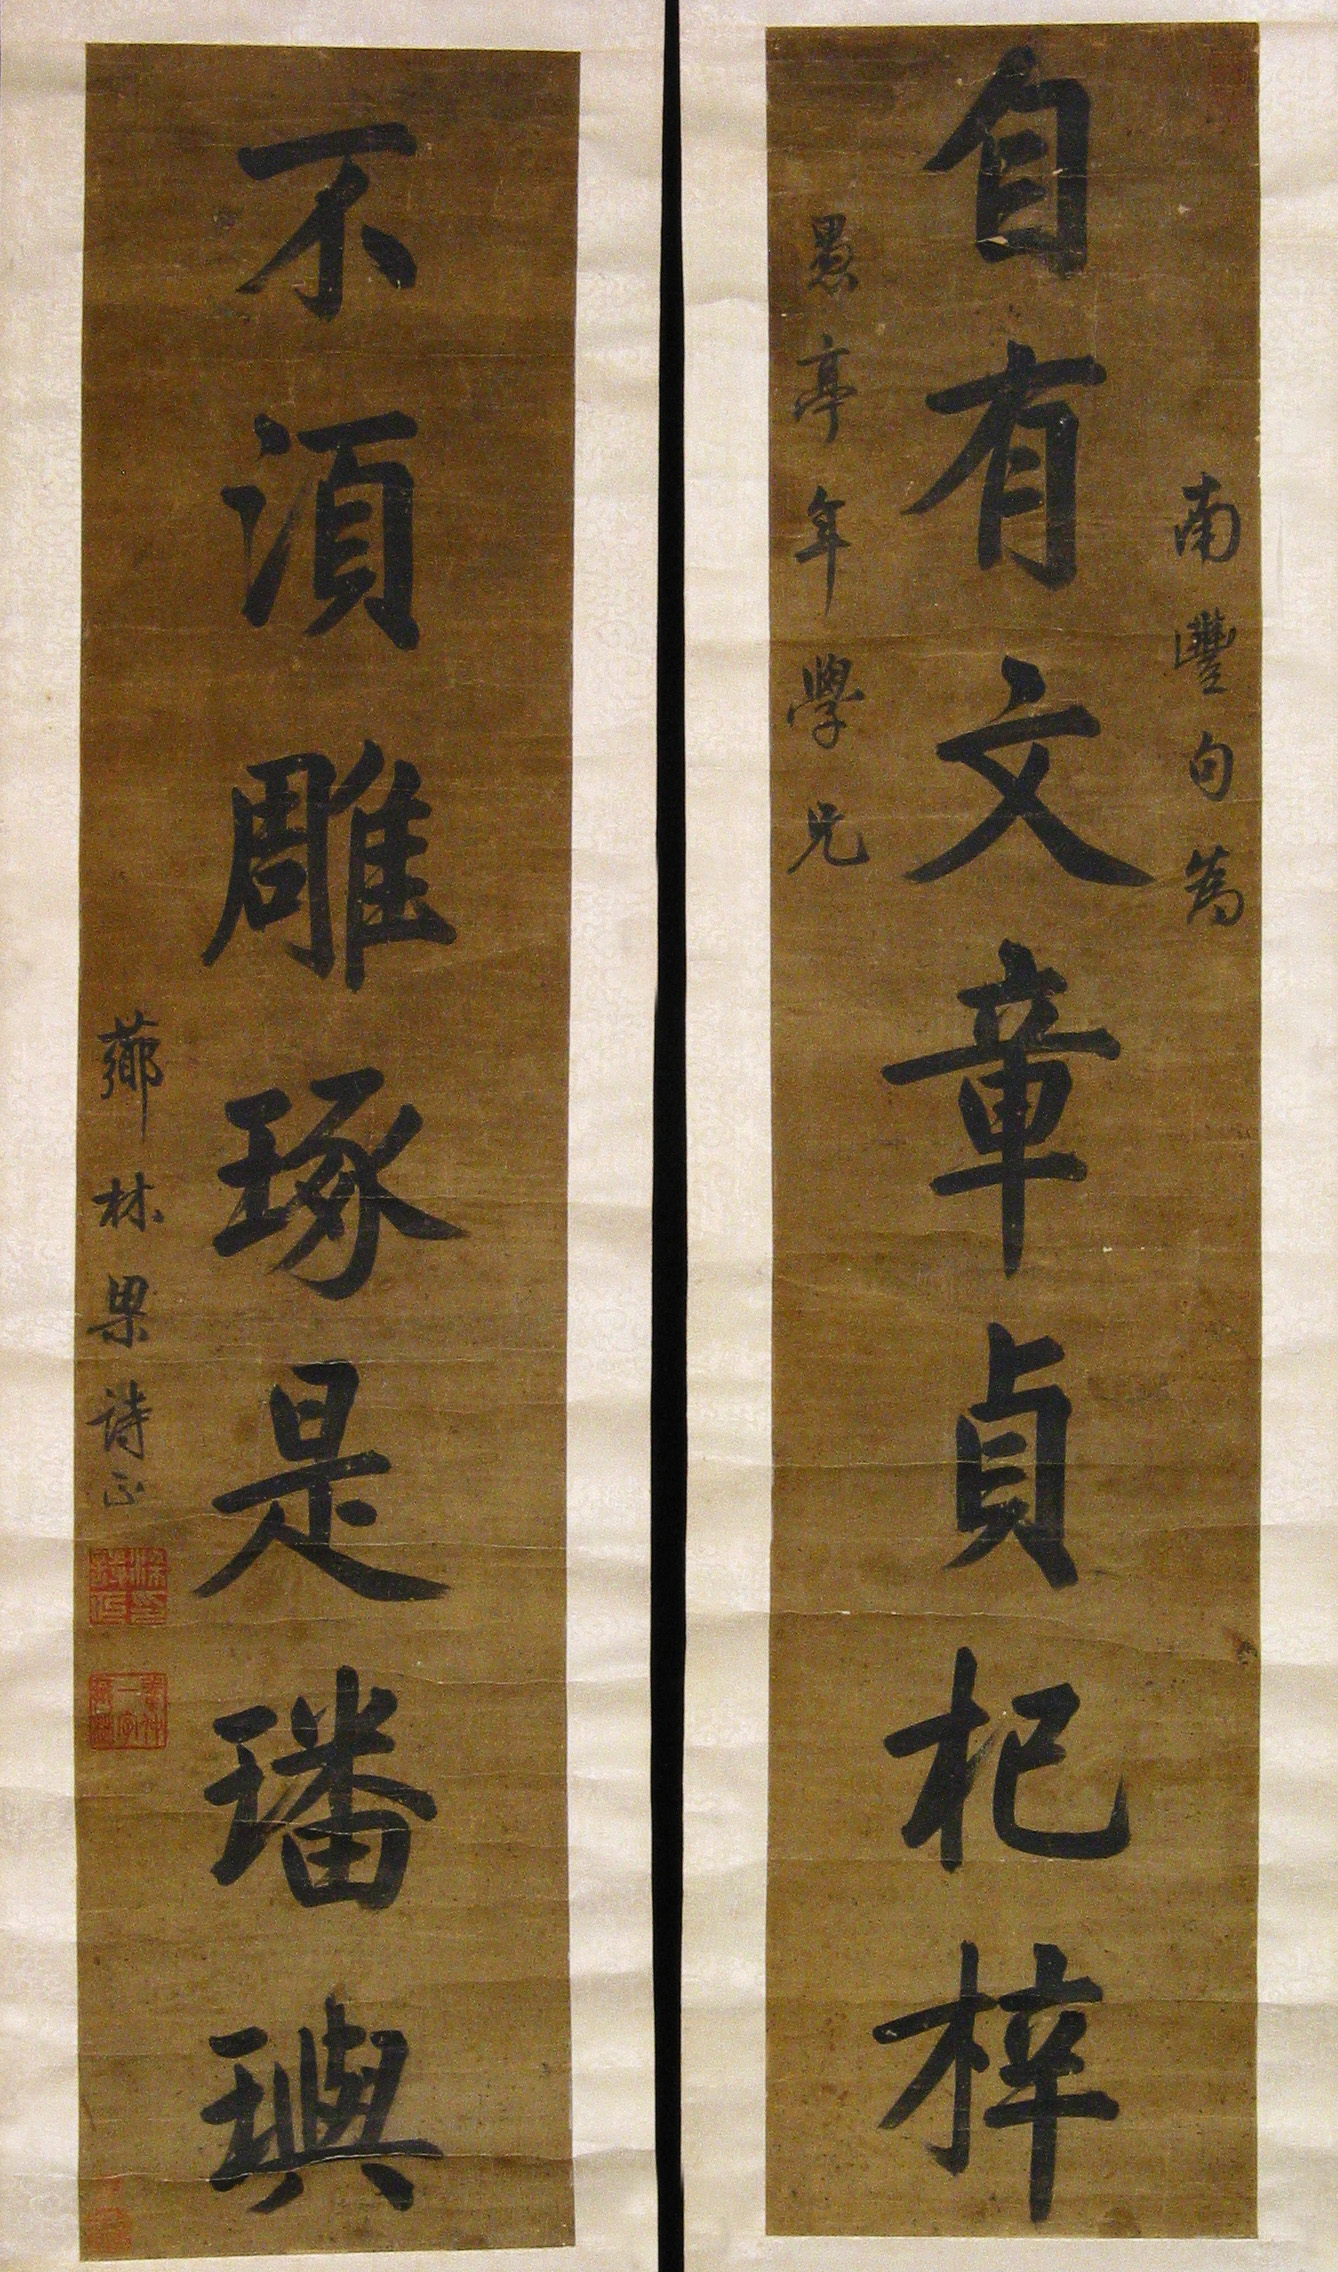 南豐句為
自有文章貞杞梓
愚亭年學兄
不須雕琢是璠璵
薌林梁詩正